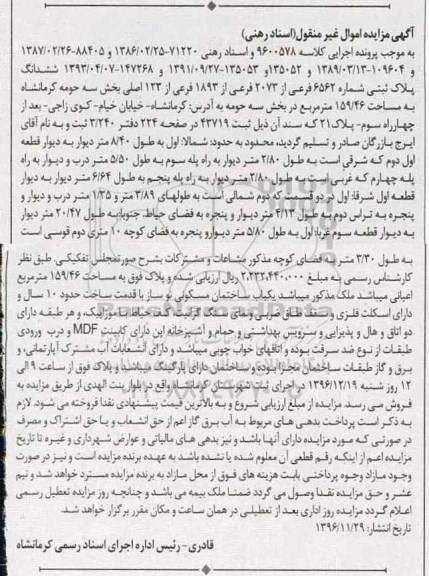 آگهی مزایده اموال غیر منقول(اسناد رهنی)
به موجب پرونده اجرایی کلاسه ۹۶۰۰۵۷۸ و اسناد رهنی ۷۱۲۲۰-۱۳۸۶/۰۲/۲۵ و ۸۸۴۰۵-۱۳۸۷/۰۲/۲۶
و ۱۰۹۶۰۴-۱۳۸۹/۰۳/۱۳ و ۱۳۵۰۵۲و ۱۳۵۰۵۳-۱۳۹۱/۰۹/۲۷ و ۱۴۷۲۶۸-۱۳۹۳/۰۴/۰۷ ششدانگ
پلاک ثبتی شماره ۶۵۶۲ فرعی از ۲۰۷۳ فرعی از ۱۸۹۳ فرعی از ۱۲۳ اصلی بخش سه حومه کرمانشاه
به مساحت ۱۵۹/۴۶ مترمربع در بخش سه حومه به آدرس: کرمانشاه- خیابان خیام- کوی زاجی- بعد از
چهارراه سوم- پلاک۲۱ که سند آن ذیل ثبت ۴۳۷۱۹ در صفحه ۲۲۴ دفتر ۳/۲۴۰ ثبت و به نام آقای
ایرج بازرگان صادر و تسلیم گردیده، محدود به حدود: شمالا: اول به طول ۸/۴۰ متر دیوار به دیوار قطعه
اول دوم که شرقی است به طول ۲/۸۰ متر دیوار به راه پله سوم به طول ۵/۵۰ متر درب و دیوار به راه
پله چهارم که غربی است به طول ۲/۸۰ متر دیوار به راه پله پنجم به طول ۶/۶۴ متر دیوار به دیوار
قطعه اول شرقا: اول در دو قسمت که دوم شمالی است به طولهای ۳/۸۹ متر و ۱/۳۵ متر درب و دیوار و
پنجره به تراس دوم به طول ۴/۱۳ متر دیوار و پنجره به فضای حیاط. جنوبا:به طول ۲۰/۴۷ متر دیوار
به دیوار قطعه سوم غربا: اول به طول ۵/۸۰ متر دیوارو پنجره به فضای کوچه ۱۰ متری دوم قوسی است
به طول ۳/۳۰ متر به فضای کوچه مذکور مشاعات و مشترکات بشرح صورتمجلس تفکیکی. طبق نظر
کارشناس رسمی به مبلغ ۲,۲۳۲,۴۴۰,۰۰۰ ریال ارزیابی شده و پلاک فوق به مساحت ۱۵۹/۴۶ مترمربع
اعیانی میباشد ملک مذکور میباشد یکباب ساختمان مسکونی نو ساز با قدمت ساخت حدود ۱۰ سال و
دارای اسکلت فلزی و سقف طاق ضربی ونمای سنگ گرانیت کف حیاط موزاییک، و هر طبقه دارای
دو اتاق و هال و پذیرایی و سرویس بهداشتی و حمام و آشپزخانه این دارای کابینت MDF و درب ورودی
طبقات از نوع ضد سرقت بوده و اتاقهای خواب چوبی میباشد و دارای انشعابات آب مشترک آپارتمانی، و
برق و گاز طبقات ساختمان مجزا بوده و ساختمان دارای پارکینگ میباشد و پلاک فوق از ساعت ۹ الی
۱۲ روز شنبه ۱۳۹۶/۱۲/۱۹ در اجرای ثبت شهرستان کرمانشاه واقع در بلوار بنت الهدی از طریق مزایده به
فروش می رسد. مزایده از مبلغ ارزیابی شروع و به بالاترین قیمت پیشنهادی نقدا فروخته می شود. لازم
به ذکر است پرداخت بدهی های مربوط به آب برق گاز اعم از حق انشعاب و یا حق اشتراک و مصرف
در صورتی که مورد مزایده دارای آنها باشد و نیز بدهی های مالیاتی و عوارض شهرداری و غیره تا تاریخ
مزایده اعم از اینکه رقم قطعی آن معلوم شده یا نشده باشد به عهده برنده مزایده است و نیز در صورت
وجود مازاد وجوه پرداختی بابت هزینه های فوق از محل مازاد به برنده مزایده مسترد خواهد شد و نیم
عشر و حق مزایده نقدا وصول می گردد ضمنا ملک بیمه می باشد و چنانچه روز مزایده تعطیل رسمی
اعلام گردد مزایده روز اداری بعد از تعطیلی در همان ساعت و مکان مقرر برگزار خواهد شد.
تاریخ انتشار: ۱۳۹۶/۱۱/۲۹
قادری- رئیس اداره اجرای اسناد رسمی کرمانشاه